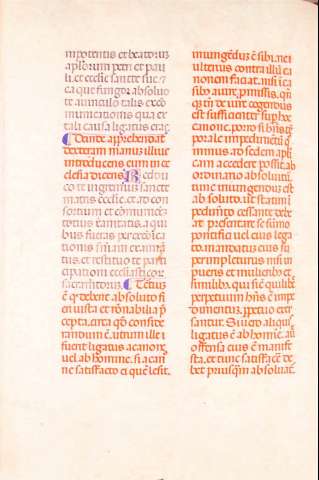 mpotentis et beatorum
aplorum petri et pau
li. et ecclie sancte sue. &
ea qua fungor absolu
to a vinculo talis exco
municationis qua ex
tali causa ligatus eras.
Deinde apprehendat
dexteram manus illius
introducens eum in ec
clesia dicens. Redu
co te in gremium sancte
matris ecclie. et ad con
sortium et comunica
totius xanitatis. a qui
bus fueras per excoica
tionis sniam exmina
tus. et restituo te parti
cipationi ecclesiasticor
sacramentorum. Tercius
est quod debent absoluto fi
eri iusta et ronabilia p
cepta. circa quod conside
randum est. utrum ille i
fuerit ligatus a canone
vel ab homine. si a can
ne satisfacto ei quem lesit.
iniungendum est sibi. ne i
ulterius contra illum ca
nonem faciat. nisi in ca
sibus a iure pmissis. qui
de iure cogendus
est sufficienter super hoc
canone. porro si
tpale impedimentum
minus ad sedem apli
cam accedere possit. ab
ordinario absolutum.
tunc iniungendus est
absoluto. ut statim i
pedimento cessante debe
at presentare se summo
pontifici vel eius lega
to. mandatum eius su
per impleturus nisi in
pueris et mulieribus et
similibus. qui sunt quilibet
perpetuum hns est impe
dimentum. ppetuo excu
santur. Si vero aliquis
ligatus est ab homine. aut
offensa eius est manife
sta. et tunc satisfacere de
bet priusquam absoluat.